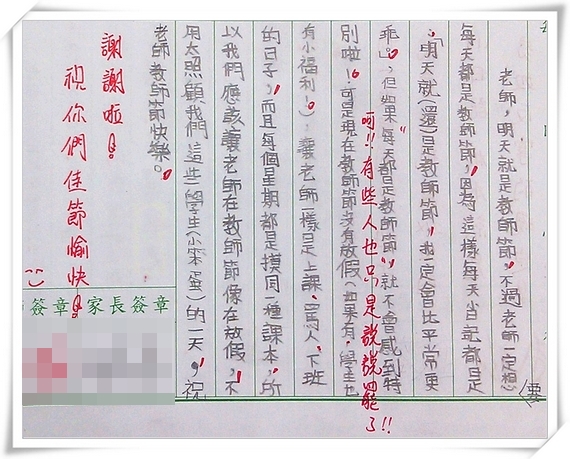 老師，明天就是教師節，不過老師一定想(要)
每天都是教師節，因為這樣每天小日記都是
「明天就(還)是教師節，我一定會比平常更
乖」，但如果"每天都是教師節"，就不會感到特
呵!!有些人也只是說說罷了!!
別啦！可是現在教師節沒有放假(如果有，學生也
有小福利！)，讓老師一樣是上課、罵人、下班
的日子，而且每個星期都是摸同一種課本，所
以我們應該讓老師在教師節像在放假，不
用太照顧我們這些學生(小笨蛋)的一天，祝
老師教師節快樂。
謝謝啦！
祝你們佳節愉快！
簽章家長簽章